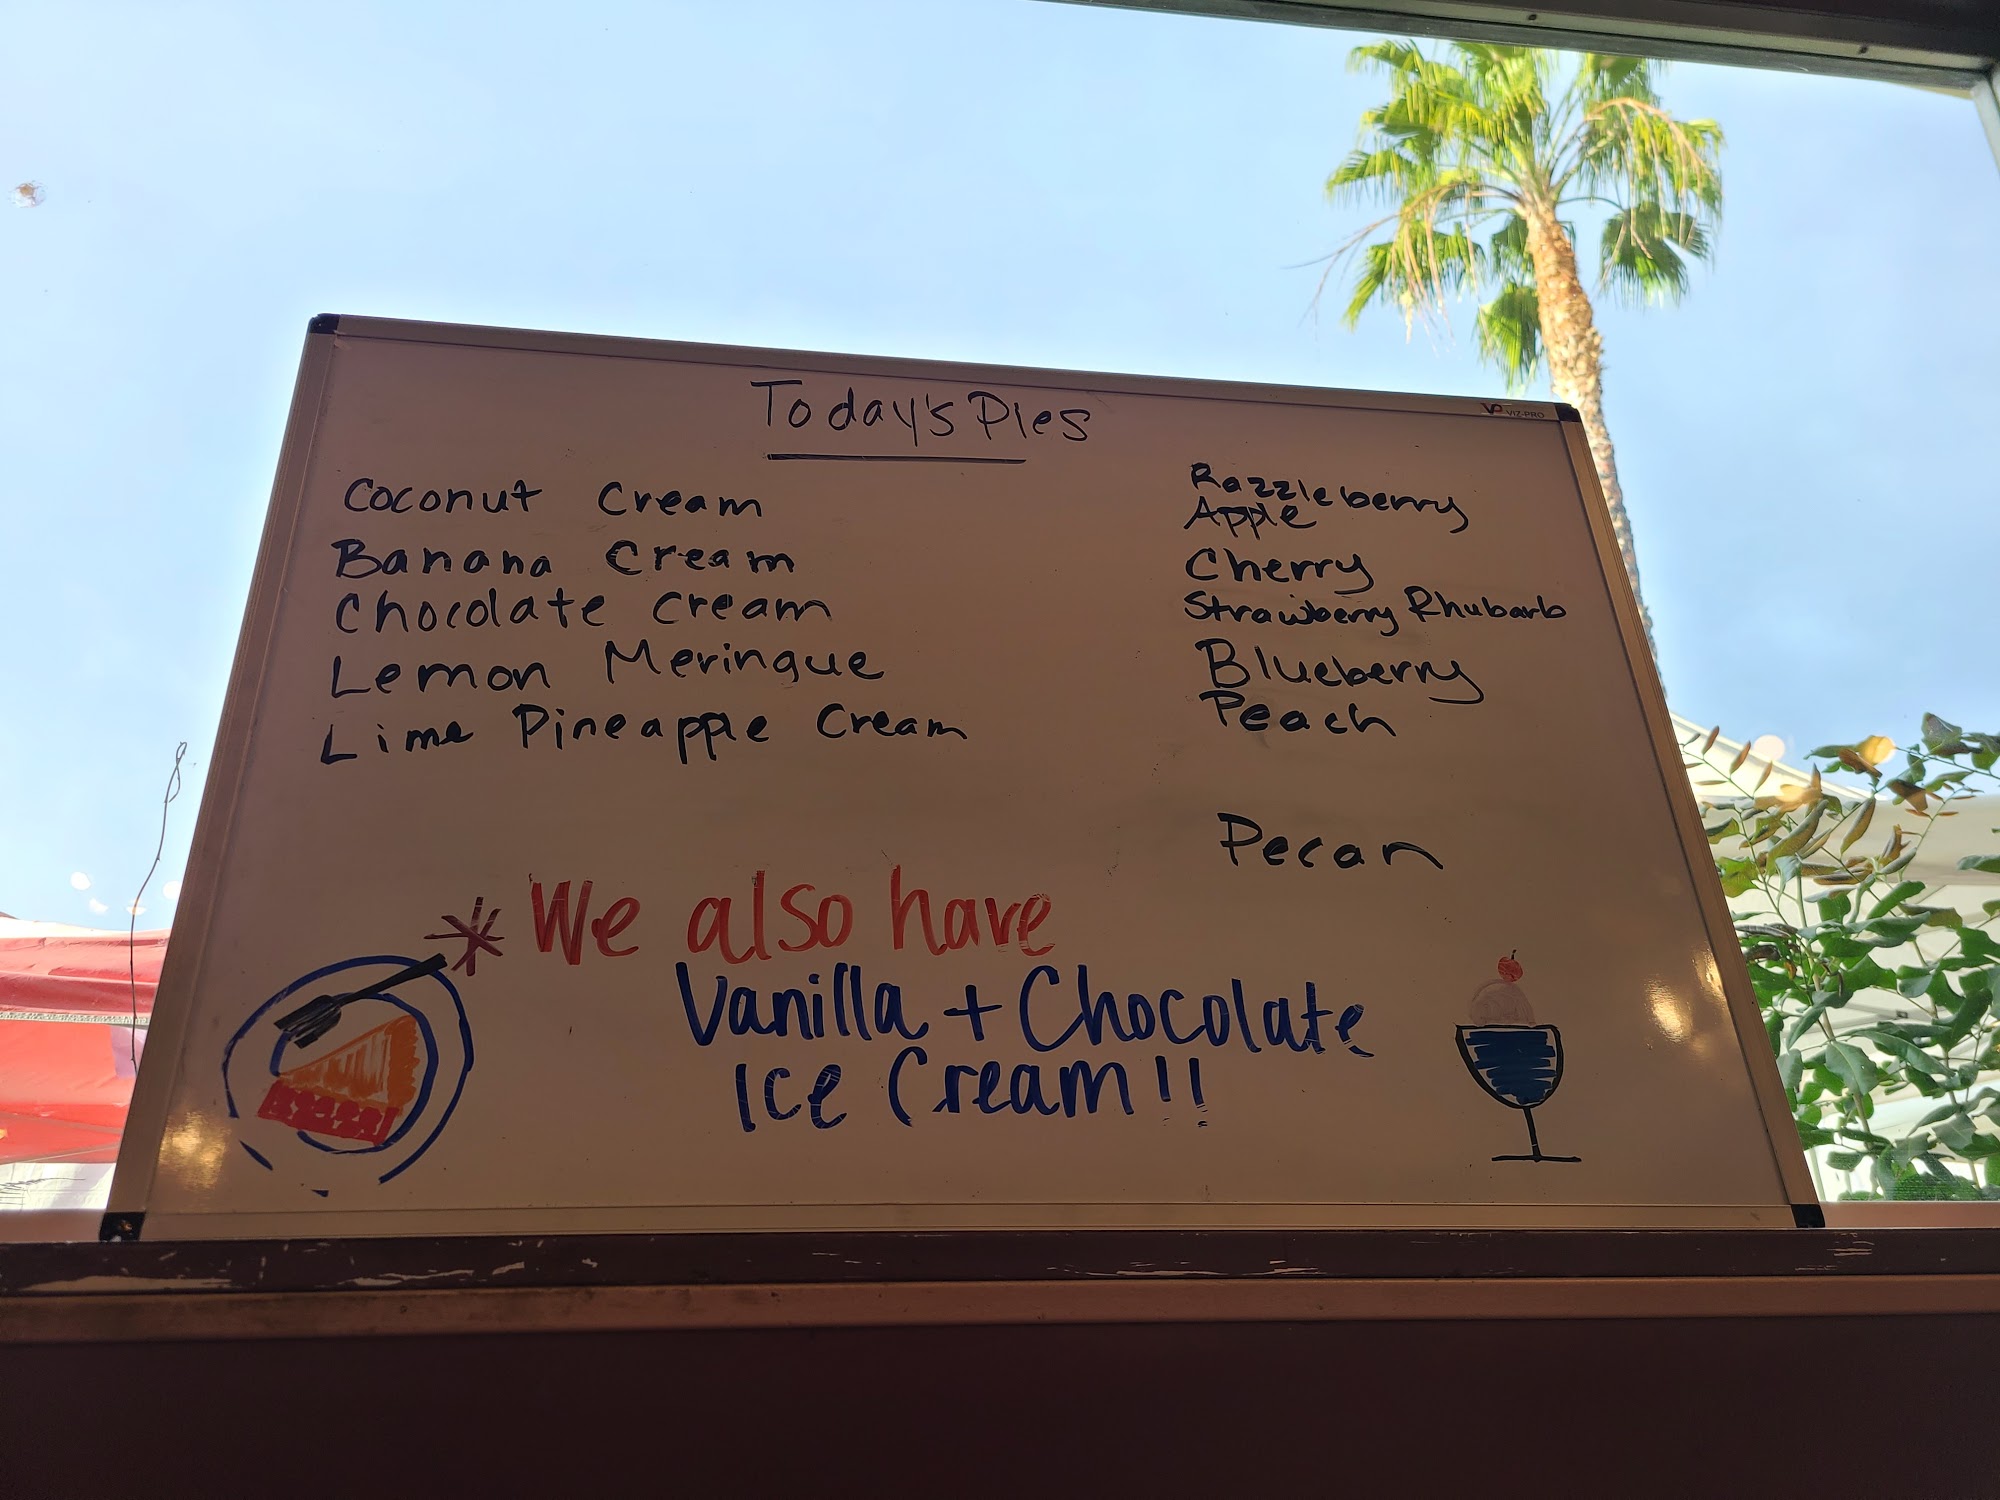 VP VIZ-PRO
Today's Pies
Coconut Cream
Banana Cream
Chocolate Cream
Lemon Meringue
Lime Pineapple Cream
Razzleberry
Apple
Cherry
Strawberry Rhubarb
Blueberry
Peach
Pecan
* We also have
Vanilla + Chocolate
Ice Cream!!